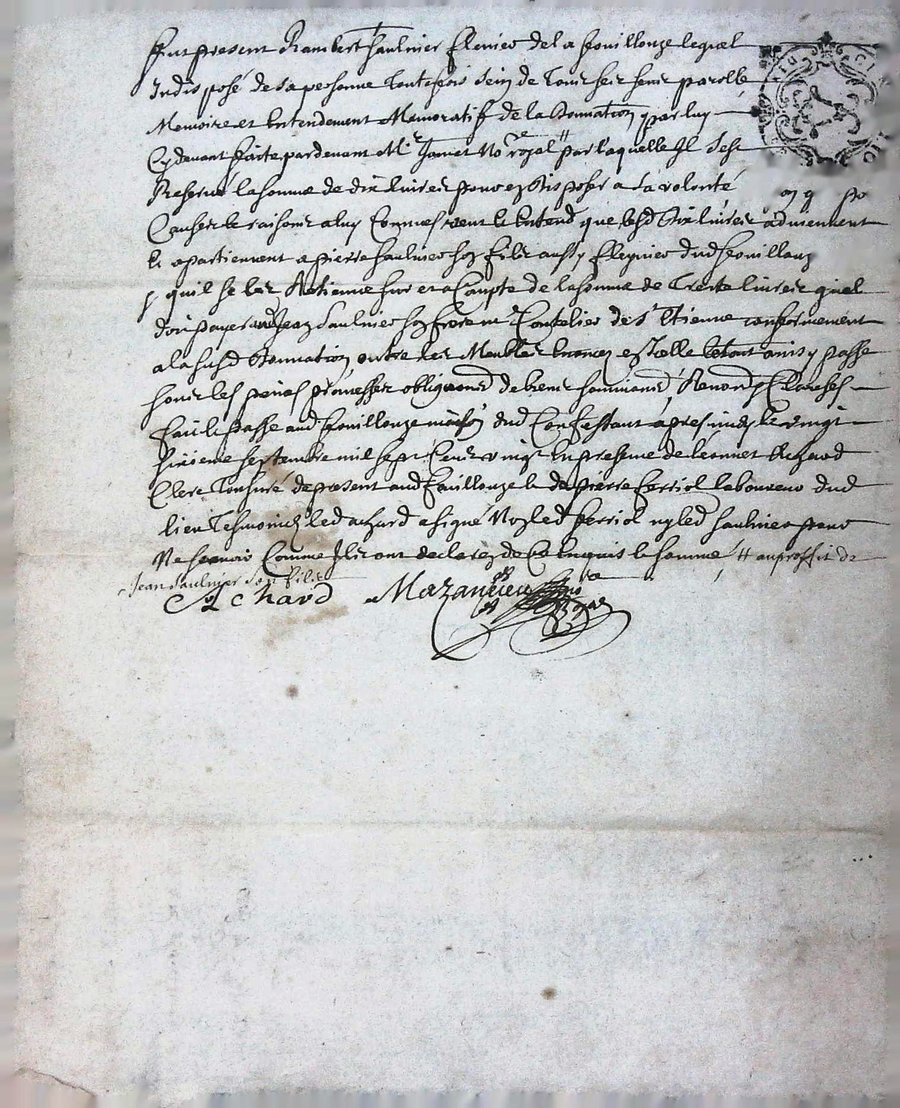 Fut present Rambert Saulnier Elenier de la fouillouze lequel
Indisposé de sa personne toutefois sein de tous ses sens parolle
Memoire et Entendement Memoratif de la Donnation par luy
Cy devant faite pardevant Me Jamet No.re royal # par laquelle Il s'est
Reservé la somme de dix livres pour en disposer a sa volonté
Causes et raisons a luy Connues veut et Entend que lesd dix livres adviennent
Et apartiennent a pierre Saulnier son fils aussy dud fouillouz
quil se les Retienne sur et a Compte de la somme de Trente livres quil
doit payer aud Jean Saulnier son frere m.e Coutelier de St Etienne conformement
a la susd Donnation outre les Meubles en icelle le tout ainsy passé
sous les peines promesses obligations de biens soumissions Renonc Clauses
fait et passé aud fouillouze maison dud Confessant apres midy le vingt
sixieme septembre mil sept Cens vingt En presence de Leonnet Achard
Clerc Tonsuré de present aud faillouze et de pierre ferriol laboureur dud
lieu Tesmoins led achard a signé Non led ferriol ny led saulnier pour
Ne scavoir Comme Ils ont declarez de Ce Enquis et sommé # au proffit de
Jean Saulnier son fils
Achard Mazandieu